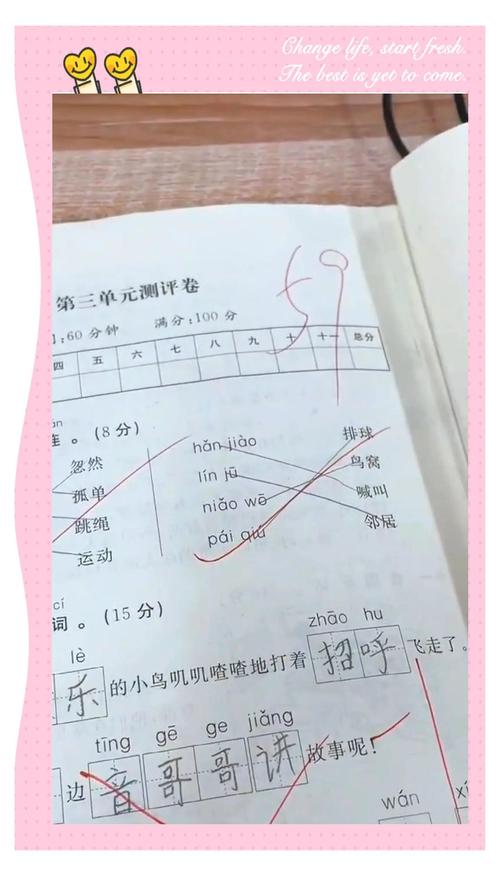 Change life, start fresh.
The best is yet to come.
59
第三单元测评卷
:60分钟 满分:100分
四 五 六 七 八 九 十 十一 总分
连。(8分)
忽然 hǎn jiào 排球
孤单 lín jū 鸟窝
跳绳 niǎo wō 喊叫
运动 pái qiú 邻居
cí
词。(15分)
lè zhāo hu
乐的小鸟叽叽喳喳地打着招呼飞走了。
tīng gē ge jiǎng
边音哥哥讲故事呢!
wán